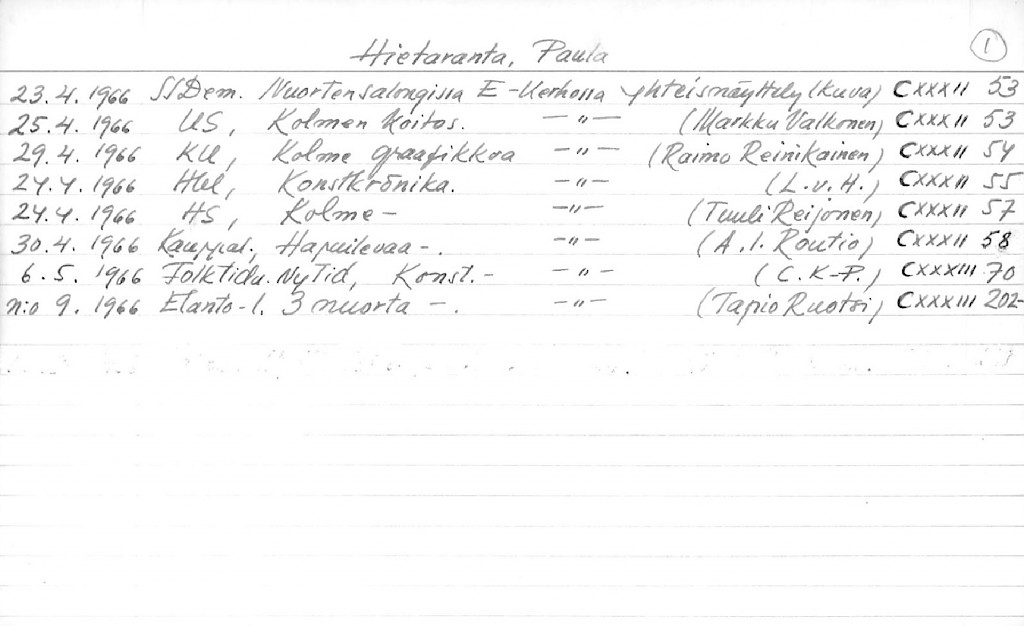 Hietaranta, Paula 1
23.4.1966 SSDem. Nuortensalongissa E-Kerhossa yhteisnäyttely (kuva) CXXXII 53
25.4.1966 US, Kolmen koitos. —"— (Markku Valkonen) CXXXII 53
29.4.1966 KU, Kolme graafikkoa —"— (Raimo Reinikainen) CXXXII 54
24.4.1966 Hbl, Konstkrönika. —"— (L.v.H.) CXXXII 55
24.4.1966 HS, Kolme — —"— (Tuuli Reijonen) CXXXII 57
30.4.1966 Kauppal., Hapuilevaa -. —"— (A.I. Routio) CXXXII 58
6.5.1966 Folktidn. Ny Tid, Konst.- —"— (C.K-P.) CXXXIII 70
n:o 9.1966 Elanto-l. 3 nuorta —. —"— (Tapio Ruotsi) CXXXIII 202-